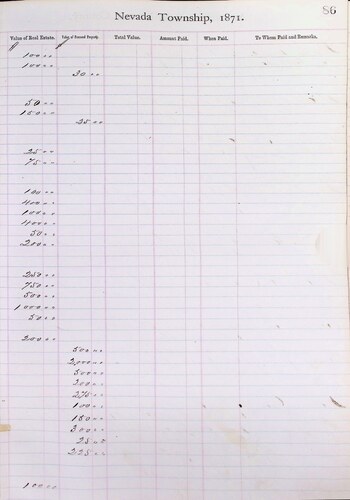 86
Nevada Township, 1871.
Value of Real Estate. Value of Personal Property. Total Value. Amount Paid. When Paid. To Whom Paid and Remarks.
100 00
100 00
30 00
50 00
150 00
25 00
75 00
100 00
400 00
100 00
400 00
50 00
200 00
250 00
750 00
500 00
1000 00
50 00
200 00
500 00
2000 00
300 00
275 00
100 00
150 00
300 00
25 00
225 00
100 00